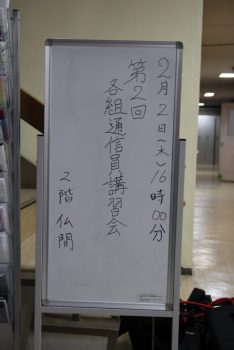 2月2日(木)16時00分
第2回
各組通信員講習会
2階仏間